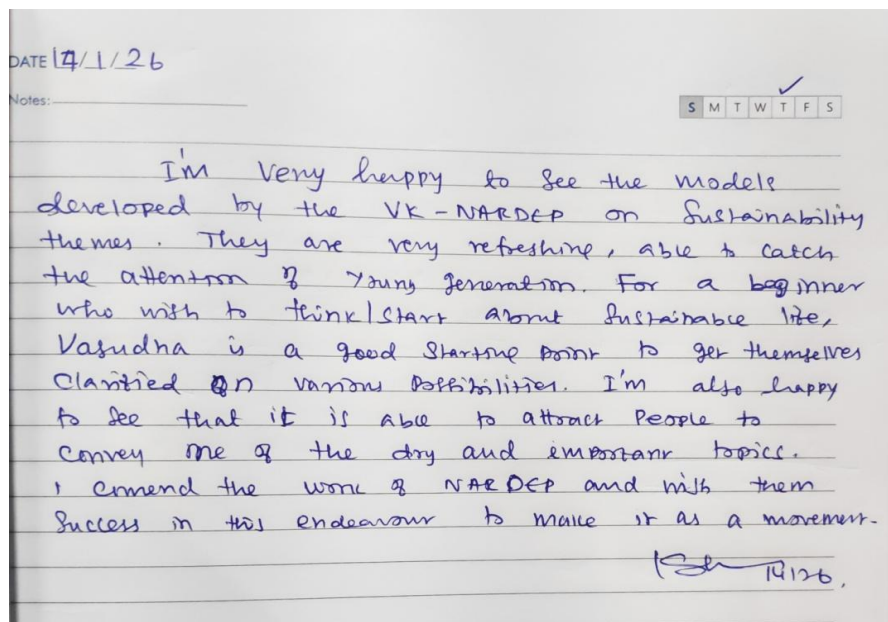 DATE 14/1/26
Notes:
S M T W T F S
I'm very happy to see the models
developed by the VK-NARDEP on Sustainability
themes. They are very refreshing, able to catch
the attention of young generation. For a beginner
who wish to think/start about Sustainable life,
Vasudha is a good starting point to get themselves
clarified on various possibilities. I'm also happy
to see that it is able to attract people to
convey one of the dry and important topics.
I comend the work of NARDEP and wish them
success in this endeavour to make it as a movement.